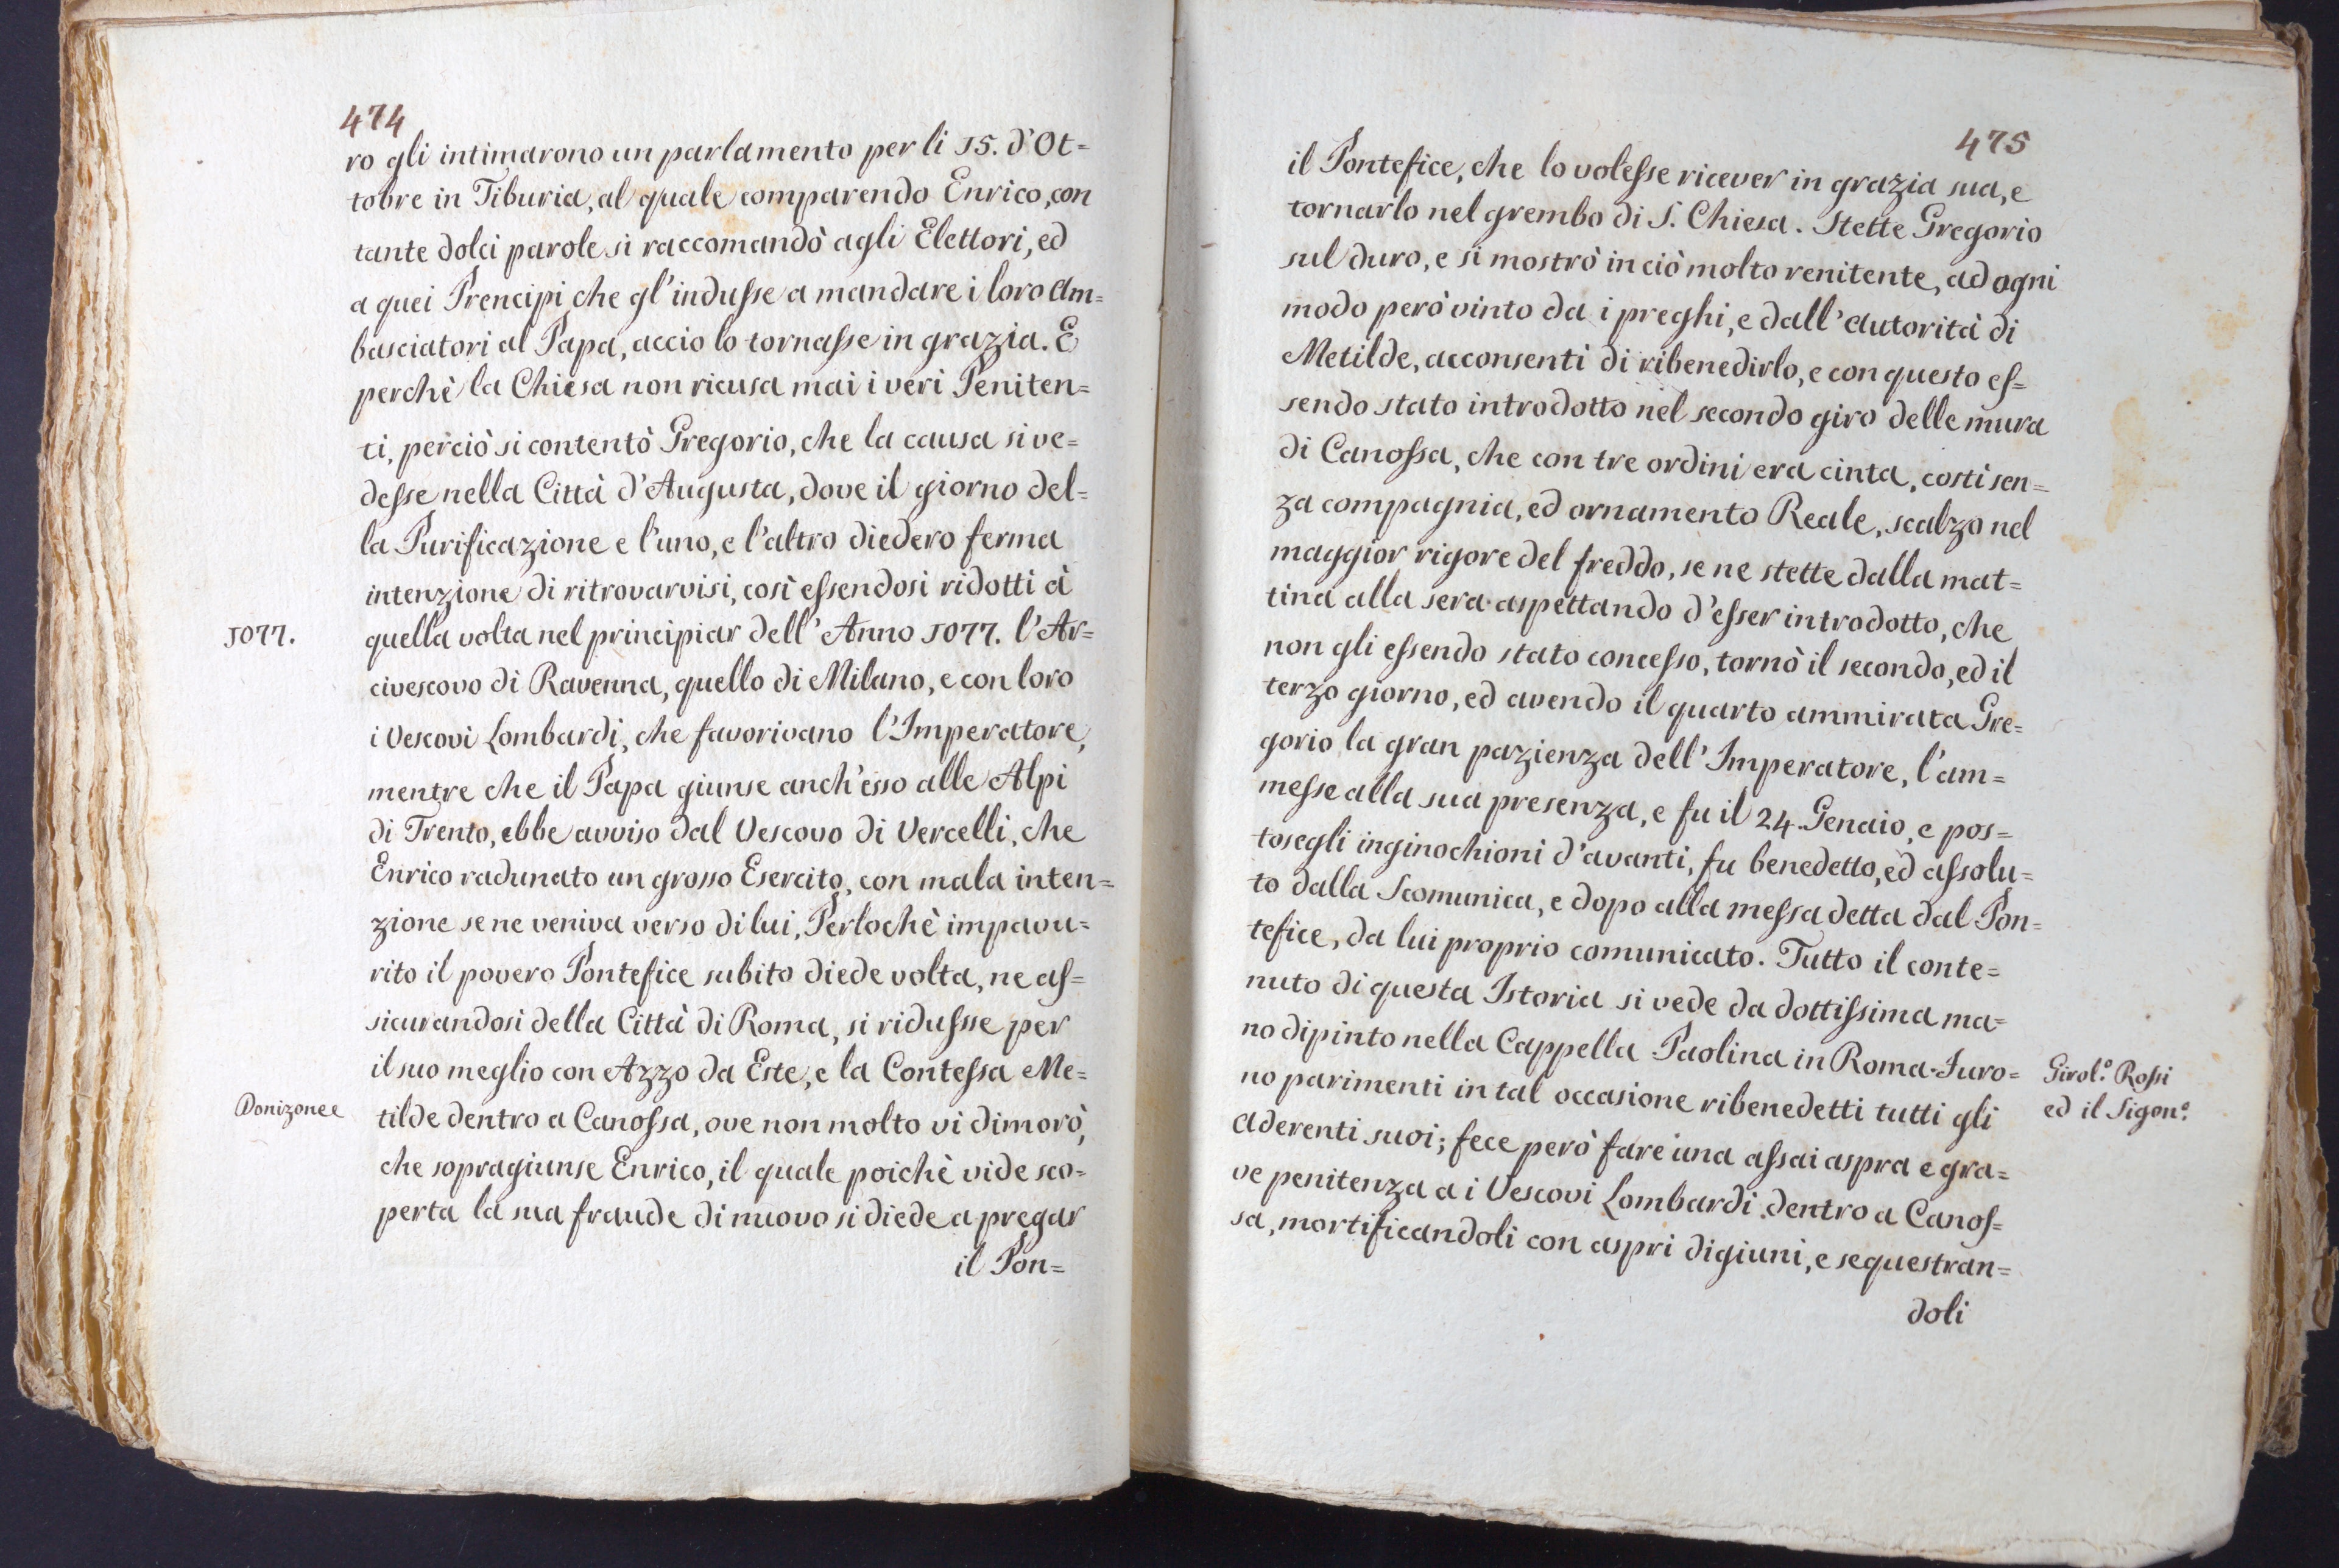 474
ro gli intimarono un parlamento per li 15. d'Ot=
tobre in Tiburia, al quale comparendo Enrico, con
tante dolci parole si raccomandò agli Elettori, ed
a quei Prencipi che gl'indusse a mandare i loro Am=
basciatori al Papa, accio lo tornasse in grazia. E
perchè la Chiesa non ricusa mai i veri Peniten=
ti, perciò si contentò Gregorio, che la causa si ve=
desse nella Città d'Augusta, dove il giorno del=
la Purificazione e l'uno, e l'altro diedero ferma
intenzione di ritrovarvisi, così essendosi ridotti à
1077.
quella volta nel principiar dell'Anno 1077. l'Ar=
civescovo di Ravenna, quello di Milano, e con loro
i Vescovi Lombardi, che favorivano l'Imperatore,
mentre che il Papa giunse anch'esso alle Alpi
di Trento, ebbe avviso dal Vescovo di Vercelli, che
Enrico radunato un grosso Esercito, con mala inten=
zione se ne veniva verso di lui, Perlochè impavu=
rito il povero Pontefice subito diede volta, ne as=
sicurandosi della Città di Roma, si ridusse per
il suo meglio con Azzo da Este, e la Contessa Me=
Donizonee
tilde dentro a Canossa, ove non molto vi dimorò,
che sopragiunse Enrico, il quale poichè vide sco=
perta la sua fraude di nuovo si diede a pregar
il Pon=
475
il Pontefice, che lo volesse ricever in grazia sua, e
tornarlo nel grembo di S. Chiesa. Stette Gregorio
sul duro, e si mostrò in ciò molto renitente, ad ogni
modo però vinto da i preghi, e dall'autorità di
Metilde, acconsentì di ribenedirlo, e con questo es=
sendo stato introdotto nel secondo giro delle mura
di Canossa, che con tre ordini era cinta, costì sen=
za compagnia, ed ornamento Reale, scalzo nel
maggior rigore del freddo, se ne stette dalla mat=
tina alla sera aspettando d'esser introdotto, che
non gli essendo stato concesso, tornò il secondo, ed il
terzo giorno, ed avendo il quarto ammirata Gre=
gorio la gran pazienza dell'Imperatore, l'am=
messe alla sua presenza, e fu il 24. Genaio, e pos=
tosegli inginochioni d'avanti, fu benedetto, ed assolu=
to dalla Scomunica, e dopo alla messa detta dal Pon=
tefice, da lui proprio comunicato. Tutto il conte=
nuto di questa Istoria si vede da dottissima ma=
no dipinto nella Cappella Paolina in Roma. Furo=
Girol.º Rossi
no parimenti in tal occasione ribenedetti tutti gli
ed il Sigon.º
Aderenti suoi; fece però fare una assai aspra e gra=
ve penitenza a i Vescovi Lombardi dentro a Canos=
sa, mortificandoli con aspri digiuni, e sequestran=
doli